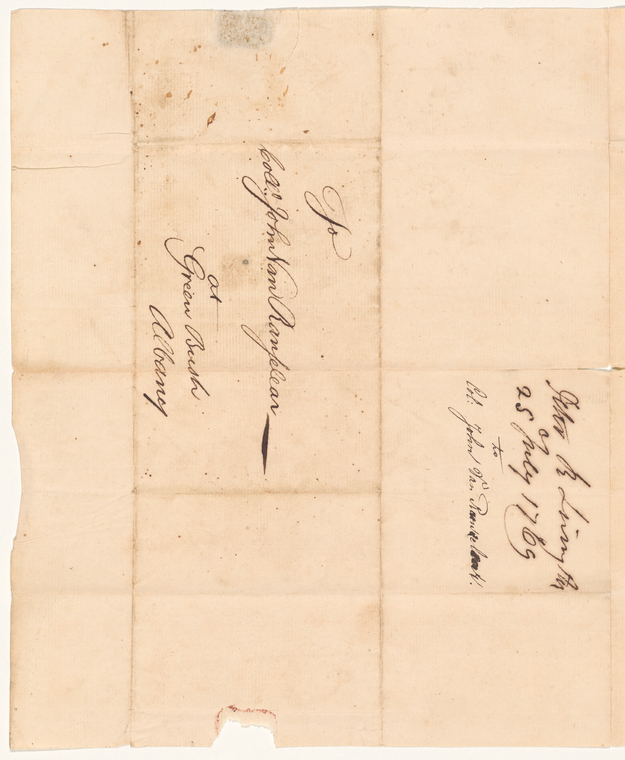 To
Colo. John Van Ranslear
at
Green Bush
Albany
R Livingston
25 July 1769
to
Col. John Van Rensselaer.